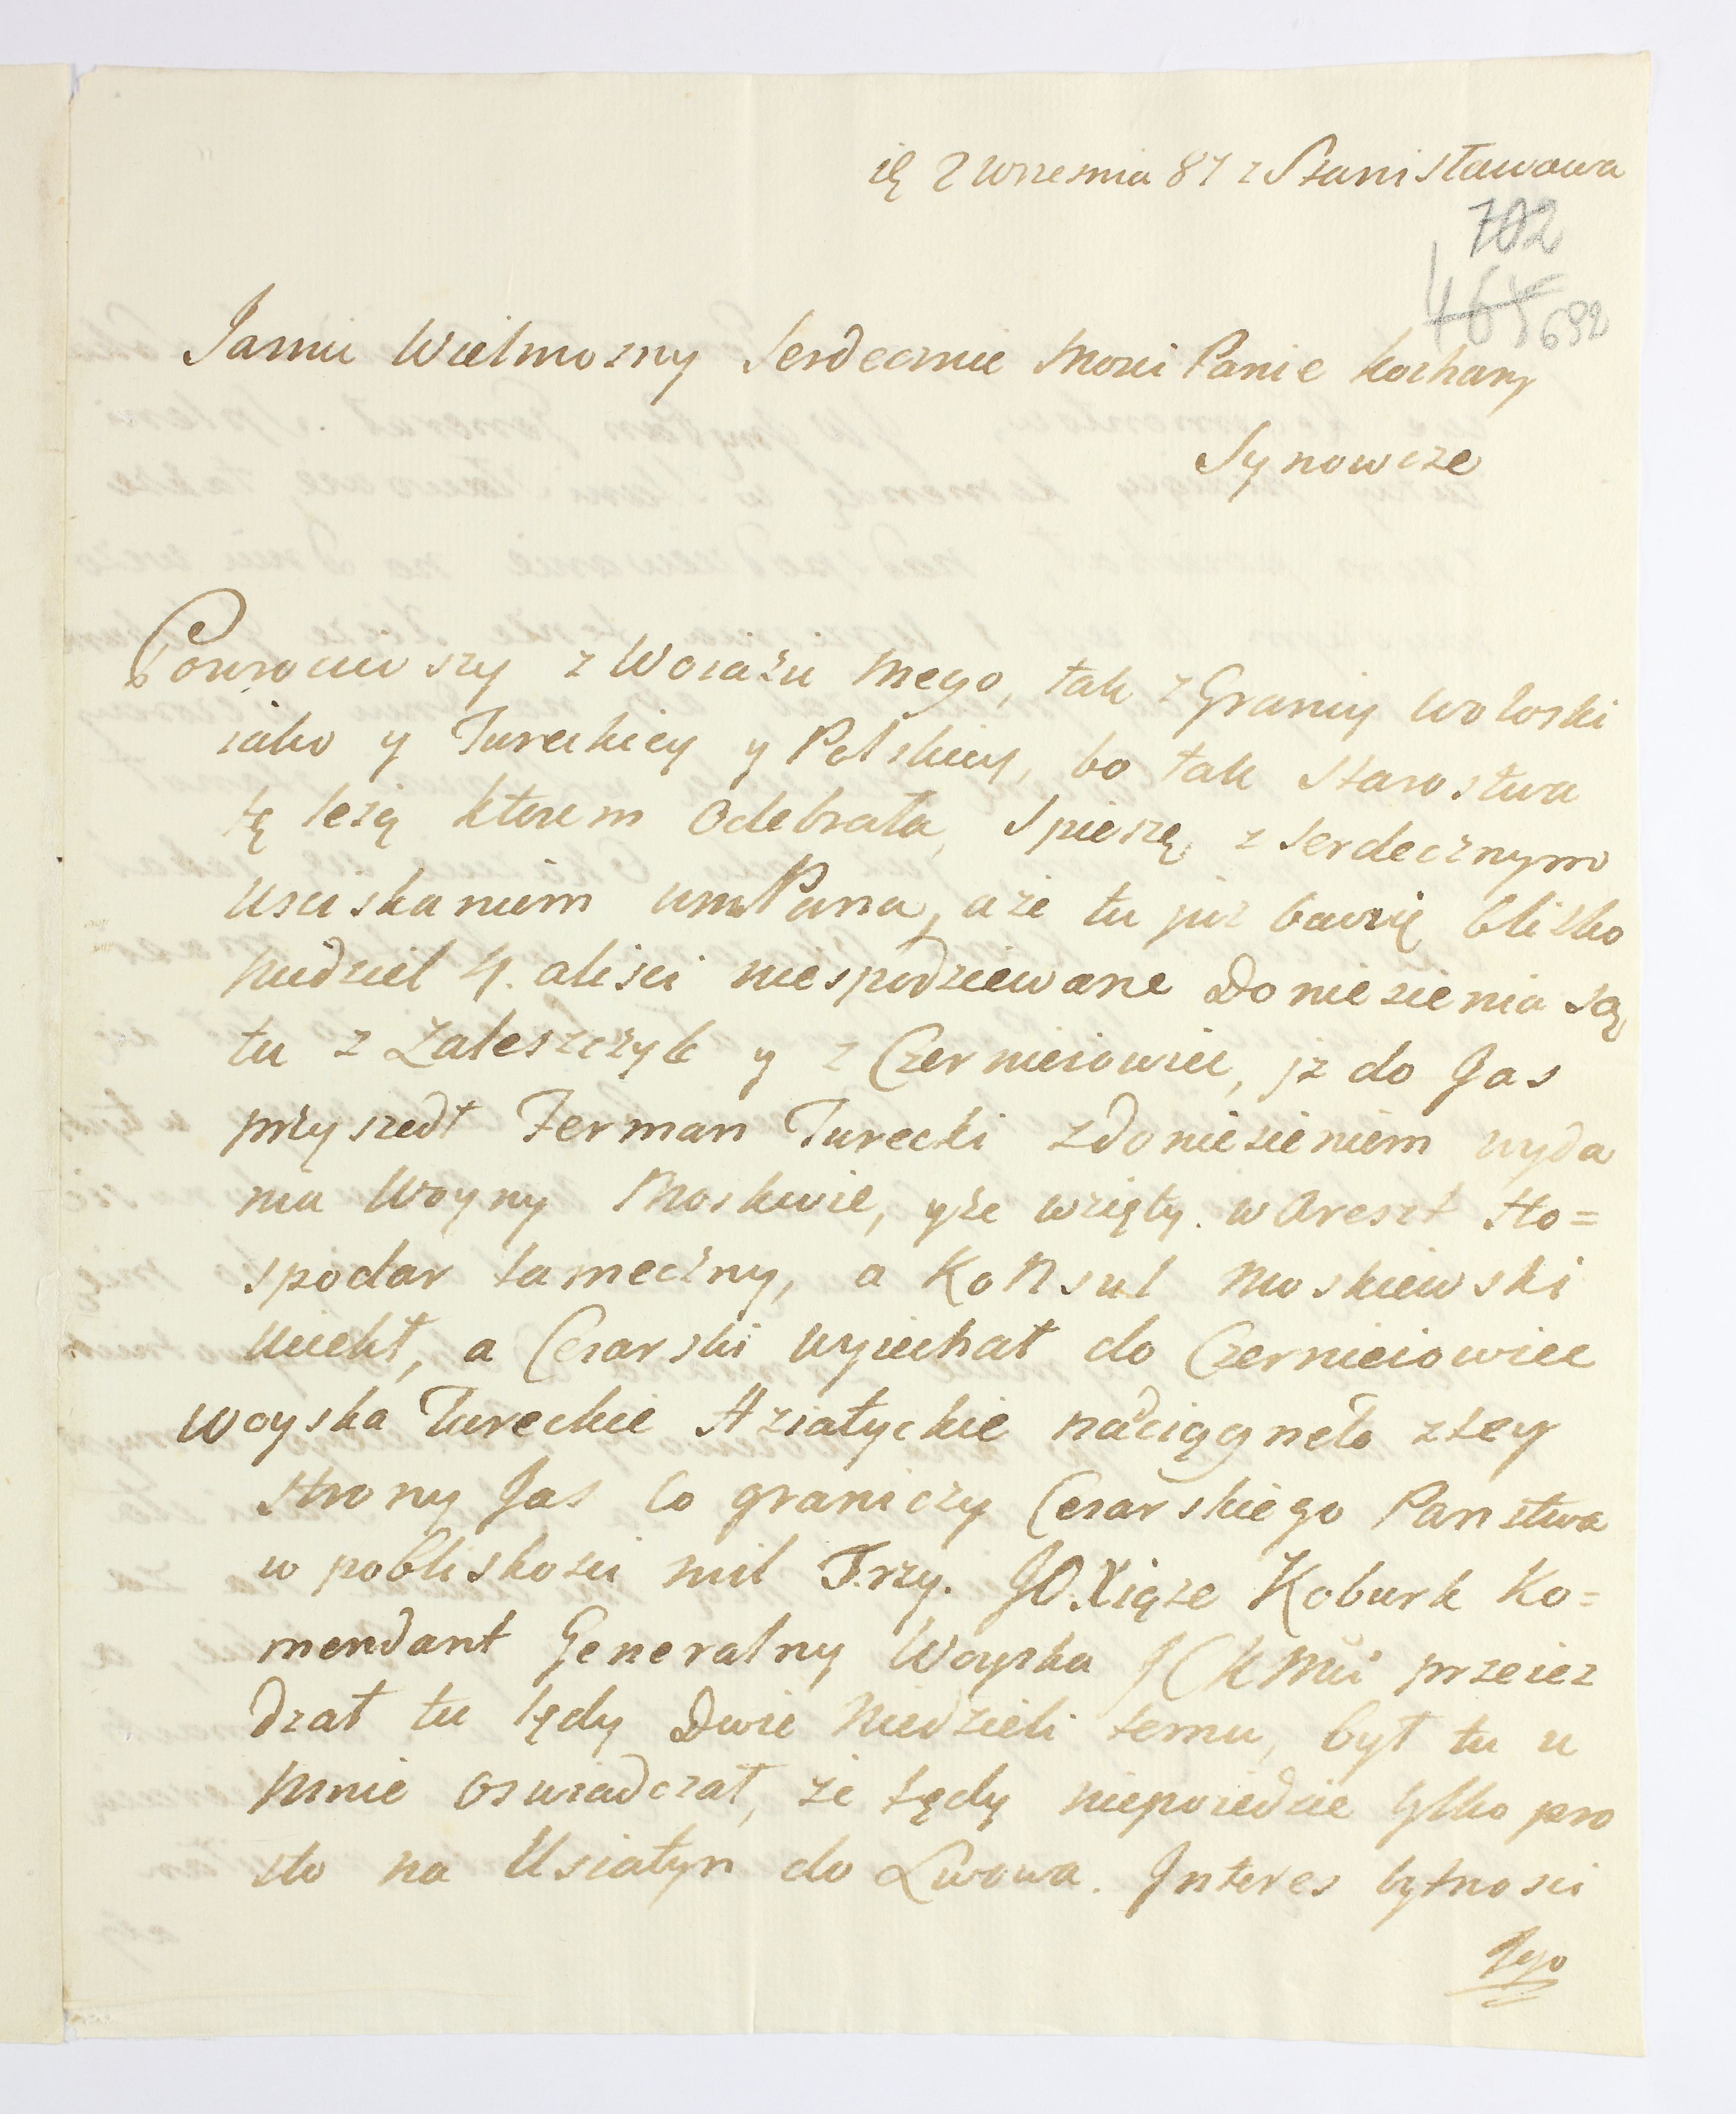 2 Wrzesnia 87 z Stanisławowa
702
465 692
Jasnie Wielmozny Serdecznie Mosci Panie kochany
Synowcze
Powrociwszy z Woiażu mego, tak z Granicy Woloski
iako y Tureckiey y Polskiey, bo tak Starostwa
tę leżą ktorem Odebrała, Spieszę z serdecznym
usciskaniem wmPana, a że tu już bawię blisko
Niedziel 4. alisci niespodziewane Doniesienia są
tu z Zaleszczyk y z Czerniciowiec, jż do Jas
przyszedł Ferman Turecki z doniesieniem wyda
nia Woyny Moskwie, y że wzięty w Areszt Ho=
spodar tameczny, a Konsul Moskiewski
Uciekł, a Cesarski wyiechał do Czerniciowiec
woyska Tureckie Aziatyckie naciągneło z tey
strony Jas co graniczy Cesarskiego Panstwa
w pobliskosci mil Trzy. JO. Xiąże Koburk Ko=
mendant Generalny Woyska JCKMci przeiez
dzał tu tędy Dwie Niedzieli temu, był tu u
Mnie oswiadczał, że tędy niepoiedzie tylko pro
sto na Usiatyn do Lwowa. Jnteres bytnosci
Jego